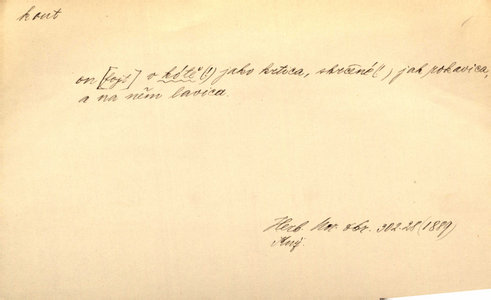 kout
on [byl] v kótě(!) jako krtica, skrčené(!) jak rokavica,
a na něm lavica.
Herb. Mor. obr. 302.28 (1889)